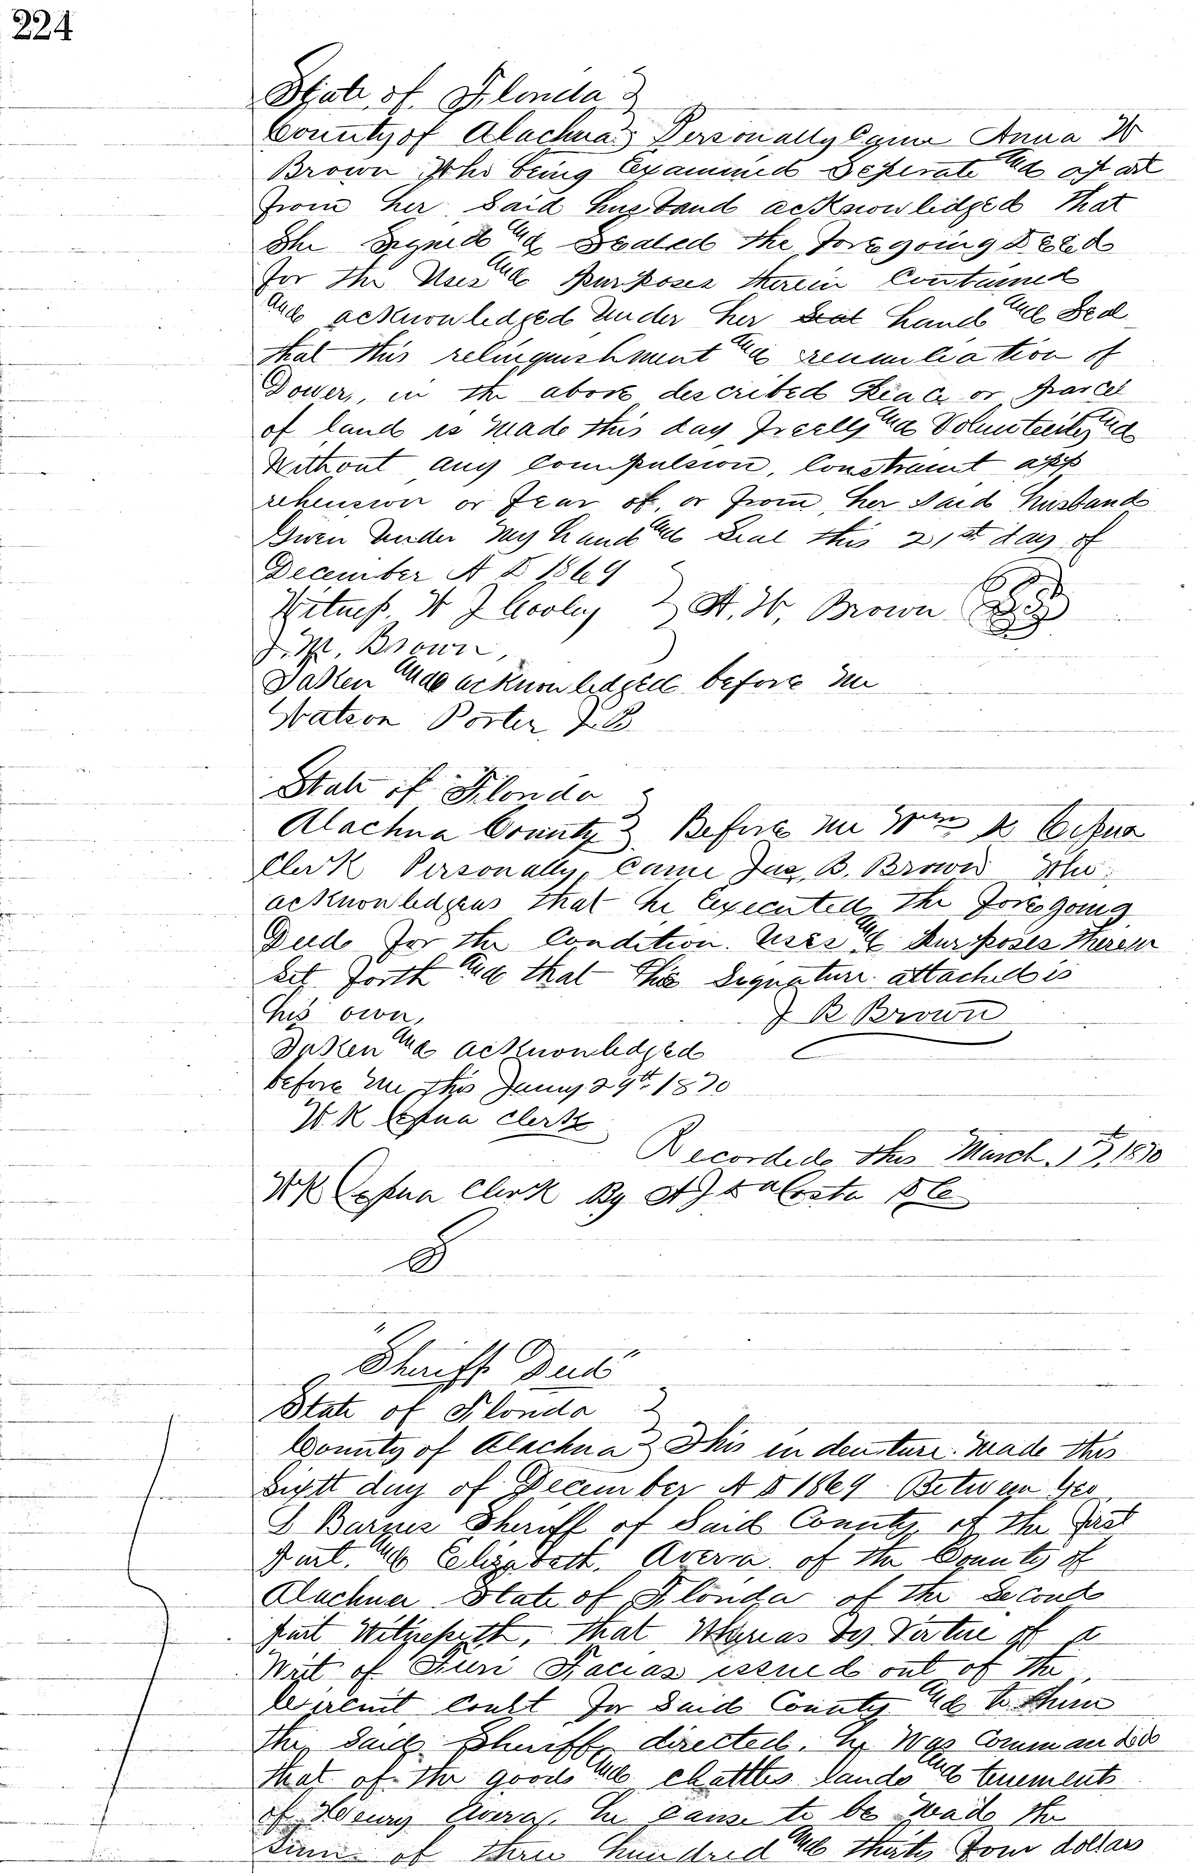 224
State of Florida }
County of Alachua } Personally Came Anna W
Brown Who being Examined Seperate and apart
from her Said husband acknowledged that
She Signed and Sealed the foregoing Deed
for the Uses and purposes therein Contained
and acknowledged under her Seal hand and Seal
that this relinquishment and renunciation of
Dower, in the above described Peace or parcel
of land is made this day freely and Volunteerily and
Without any Compulsion, Constraint app
rehension or fear of, or from, her Said husband
Given under my hand and Seal this 21st day of
December A D 1869
Witness W J Cooley } A. W. Brown
J. M. Brown,
Taken and acknowledged before me
Watson Porter J. P.
State of Florida }
Alachua County } Before me Wm K Cessna
Clerk Personally, Came Jas. B. Brown Who
acknowledgeus that he Executed the foregoing
Deed for the Condition. Uses and purposes therein
Set forth and that this Signature attached is
his own, J B Brown
Taken and acknowledged
before me this Janny 29th 1870
W K Cessna Clerk
Recorded this March 1st, 1870
W K Cessna Clerk By A J DaCosta D C
"Sheriff Deed"
State of Florida }
County of Alachua } This indenture made this
Sixtt day of December A D 1869 Between Geo
S Barnes Sheriff of Said County of the first
part. and Elizabeth. Avera of the County of
Alachua State of Florida of the Second
part Witnesseth, that Whereas by Virtue of a
Writ of Fieri Facias issued out of the
Circuit Court for Said County and to him
the Said Sheriff directed. he Was Commanded
that of the goods and chattles lands and tenements
of Henry Avera, he cause to be made the
Sum of three hundred and thirty four dollars